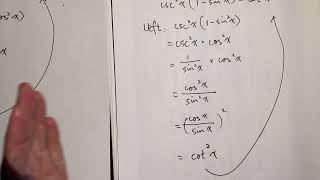 csc²x(1-sin²x) =
Left: csc²x(1-sin²x)
= csc²x · cos²x
= 1/sin²x · cos²x
= cos²x/sin²x
= (cosx/sinx)²
= cot²x